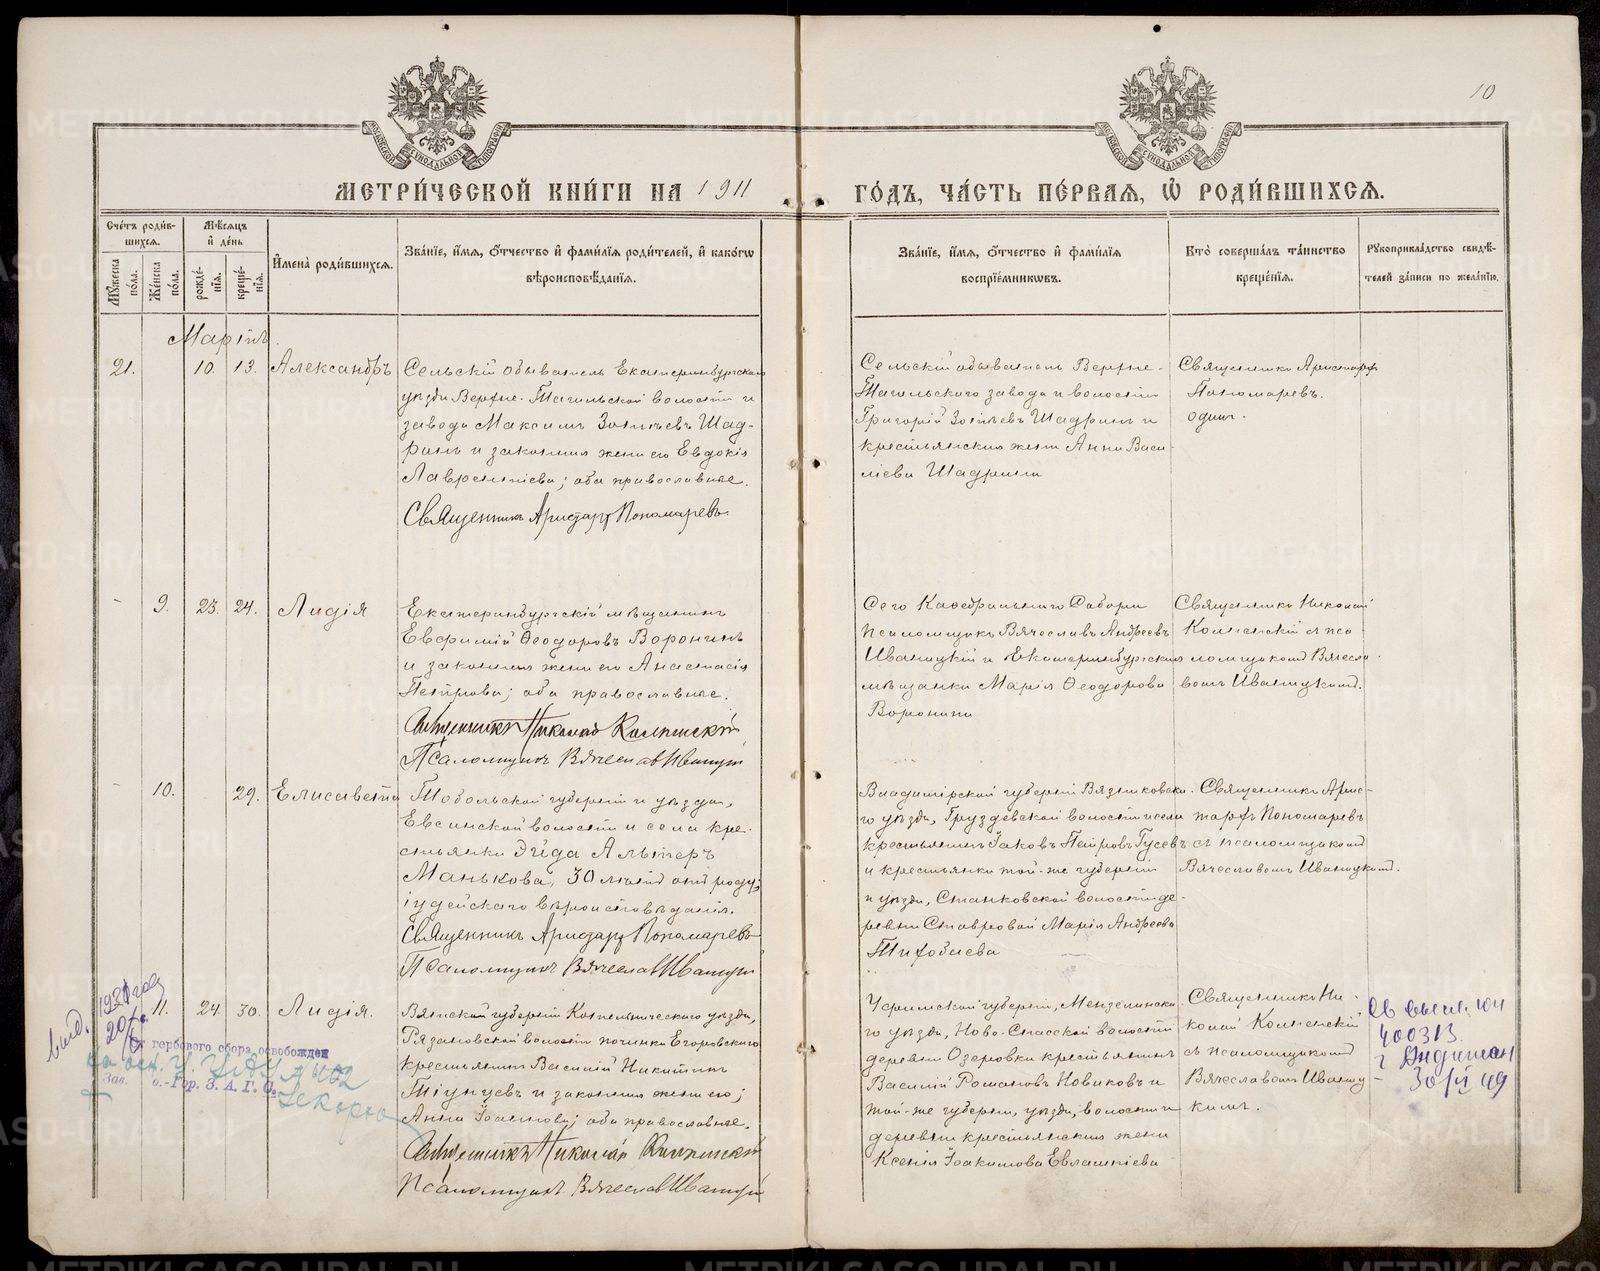 10
МЕТРИ́ЧЕСКОЙ КНИ́ГИ НА 1911 ГО́ДЪ, ЧА́СТЬ ПЕ́РВАЯ, Ѡ РОДИ́ВШИХСЯ.
Сче́тъ роди́в-
шихся.
Мѣ́сяцъ
и де́нь
Имена̀ роди́вшихся.
Зва́нїе, и́мя, о́тчество и фами́лїя роди́телей, и како́гѡ
вѣроисповѣ́данїя.
Мꙋ́жеска
по́ла.
Же́нска
по́ла.
рожде́-
нїя.
креще́-
нїя.
Зва́нїе, и́мя, о́тчество и фами́лїя
воспрїе́мникѡвъ.
Кто̀ соверша́лъ та́инство
креще́нїя.
Рꙋкоприкла́дство свидѣ́-
телей за́писи по жела́нїю.
Мартъ.
21. 10. 13. Александръ
Сельскій обыватель Екатеринбургскаго
уѣзда Верхне-Тагильской волости и
завода Максимъ Зотѣевъ Шад-
ринъ и законная жена его Евдокія
Лаврентіева; оба православные.
Священникъ Аристархъ Пономаревъ
Сельскій обыватель Верхне-
Тагильскаго завода и волости
Григорій Зотѣевъ Шадринъ и
крестьянская жена Анна Васи-
ліева Шадрина
Священникъ Аристархъ
Пономаревъ.
одинъ.
- 9. 23. 24. Лидія
Екатеринбургскій мѣщанинъ
Евфимій Ѳеодоровъ Воронинъ
и законная жена его Анастасія
Петрова; оба православные.
Священникъ Николай
Псаломщикъ Вячеславъ Иваницкій
Сего Каѳедральнаго Собора
псаломщикъ Вячеславъ Андреевъ
Иваницкій и Екатеринбургская
мѣщанка Марія Ѳеодорова
Воронина
Священникъ Николай
съ пса-
ломщикомъ Вячесла-
вомъ Иваницкимъ.
- 10. 29. Елисавета
Тобольской губерніи и уѣзда,
Евсинской волости и села кре-
стьянка Эйда Альтеръ
Манькова, 30 лѣтъ отъ роду,
іудейскаго вѣроисповѣданія.
Священникъ Аристархъ Пономаревъ
Псаломщикъ Вячеславъ Иваницкій
Владимірской губерніи Вязниковска-
го уѣзда, Груздевской волости и села
крестьянинъ Іаковъ Петровъ Гусевъ
и крестьянка той-же губерніи
и уѣзда, Станковской волости де-
ревни Ставровой Марія Андреева
Священникъ Арис-
тархъ Пономаревъ
съ псаломщикомъ
Вячеславомъ Иваницкимъ.
11. 24. 30. Лидія.
Вятской губерніи Котельническаго уѣзда,
Рязановской волости починка Егоровскаго
крестьянинъ Василій Никитинъ
Тіунцевъ и законная жена его;
Анна Іоаннова; оба православные.
Священникъ Николай
Псаломщикъ Вячеславъ Иваницкій
Уфимской губерніи, Мензелинска-
го уѣзда, Ново-Спасской волости
деревни Озеровки крестьянинъ
Василій Романовъ Новиковъ и
той-же губерніи, уѣзда, волости и
деревни крестьянская жена
Ксенія Іоакимова Евлантіева
Священникъ Ни-
колай
съ псаломщикомъ
Вячеславомъ Иваниц-
кимъ.
400313
г Андижан
выд.
От гербового сбора освобожден
Зав. о.-Гор. З. А. Г. С.